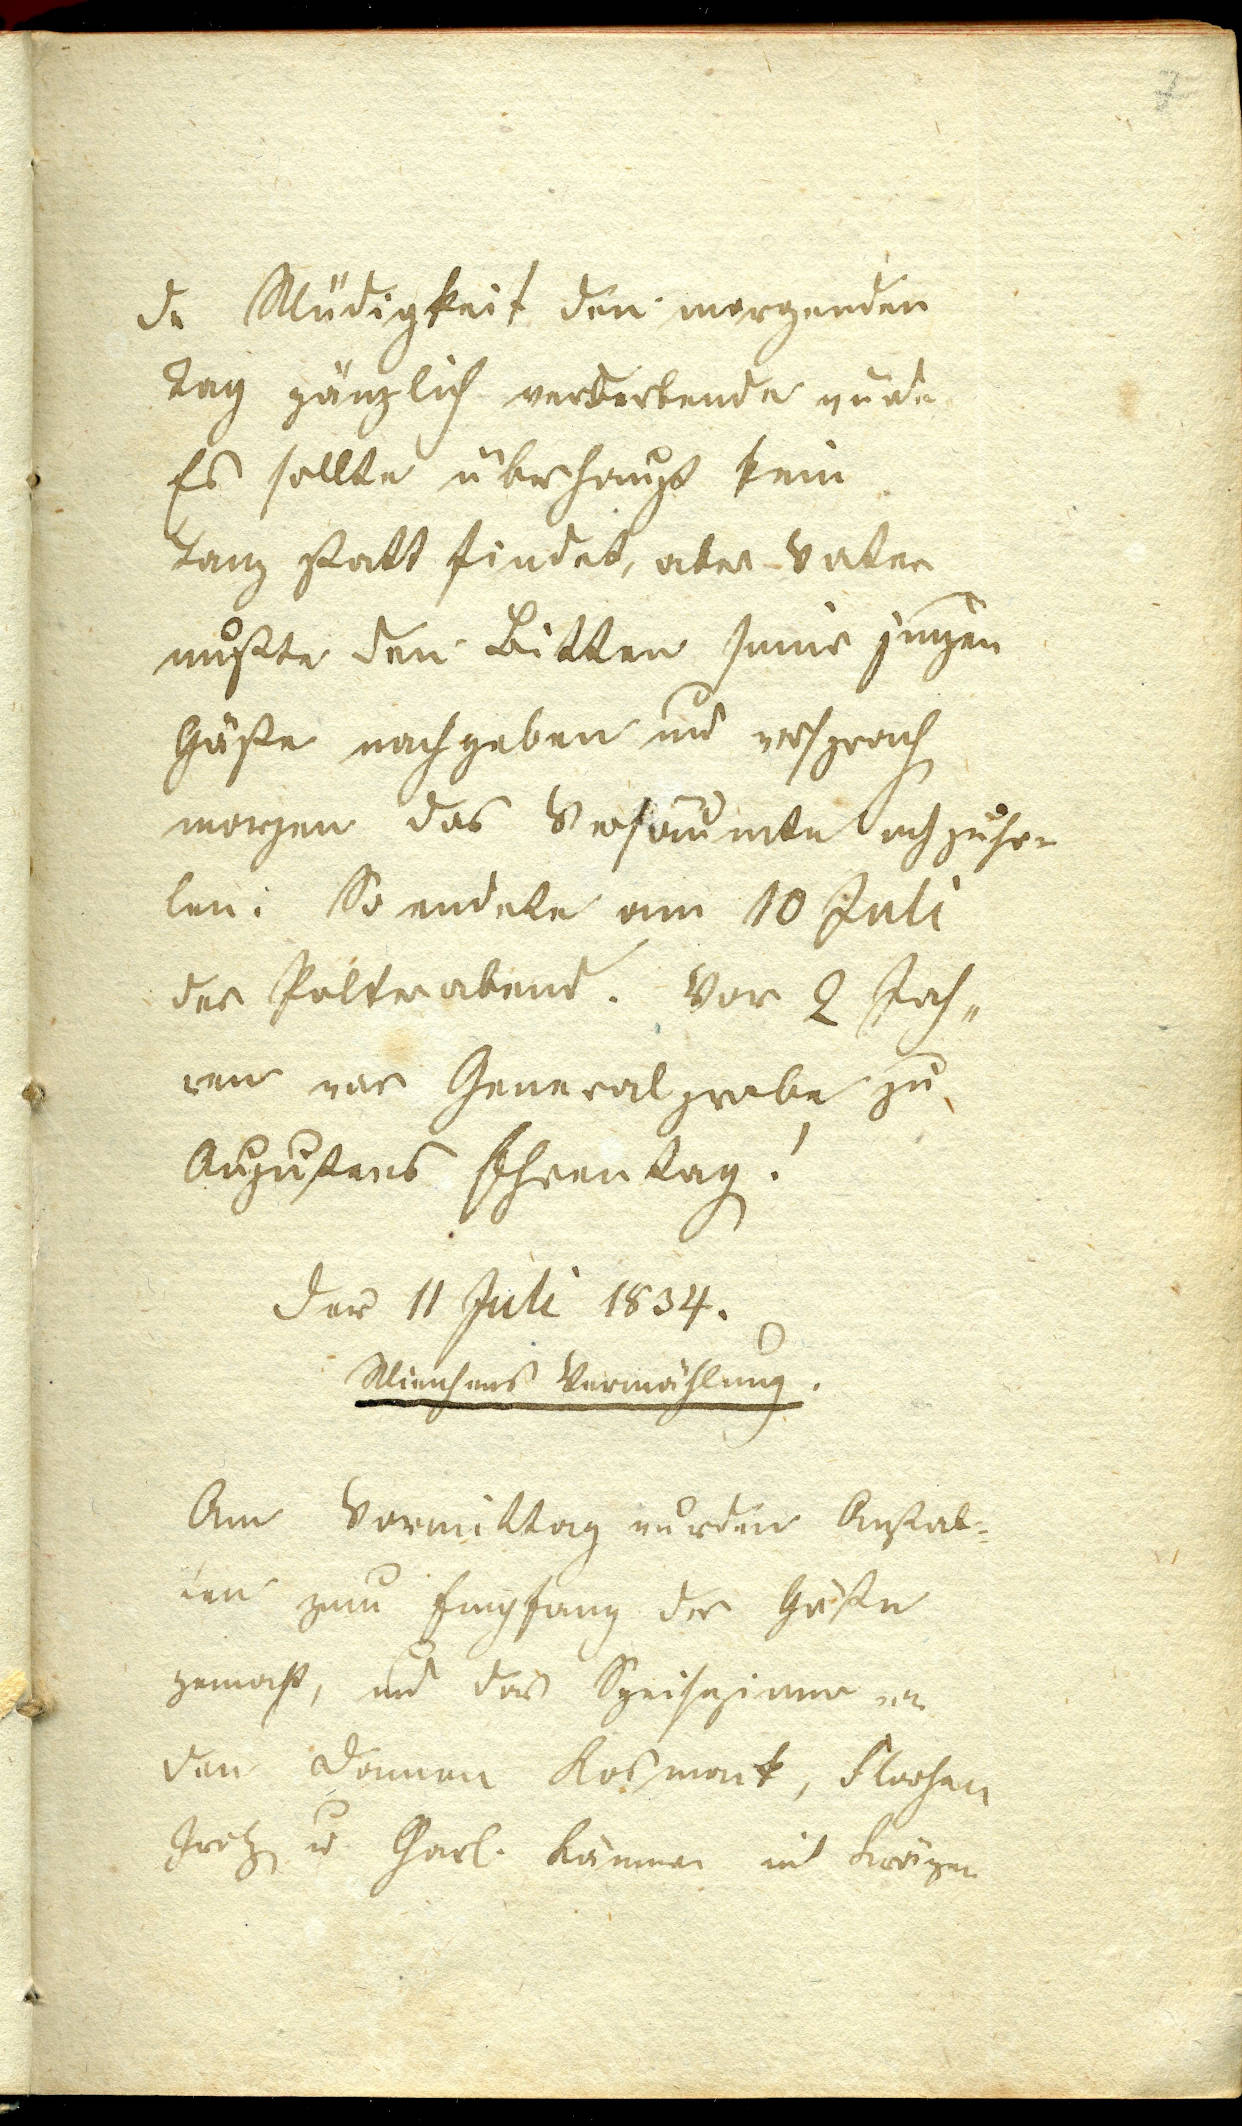 7
die Müdigkeit den morgenden
Tag gänzlich verderbende würde
Es sollte überhaupt kein
Tanz statt findet, aber Vater
mußte den Bitten seiner jungen
Gäste nachgeben und versprach
morgen das Versäumte nachzuho-
len. So endete am 10 Juli
der Polterabend. Vor 2 Jah„
ren war Generalprobe zu
Augustens Ehrentag!
Der 11 Juli 1834.
Minchens Vermählung.
Am Vormittag wurden Anstal-
ten zum Empfang der Gäste
gemacht, und das Speisezimmer von
den Damen Kosmark, Florchen
u Charl. mit